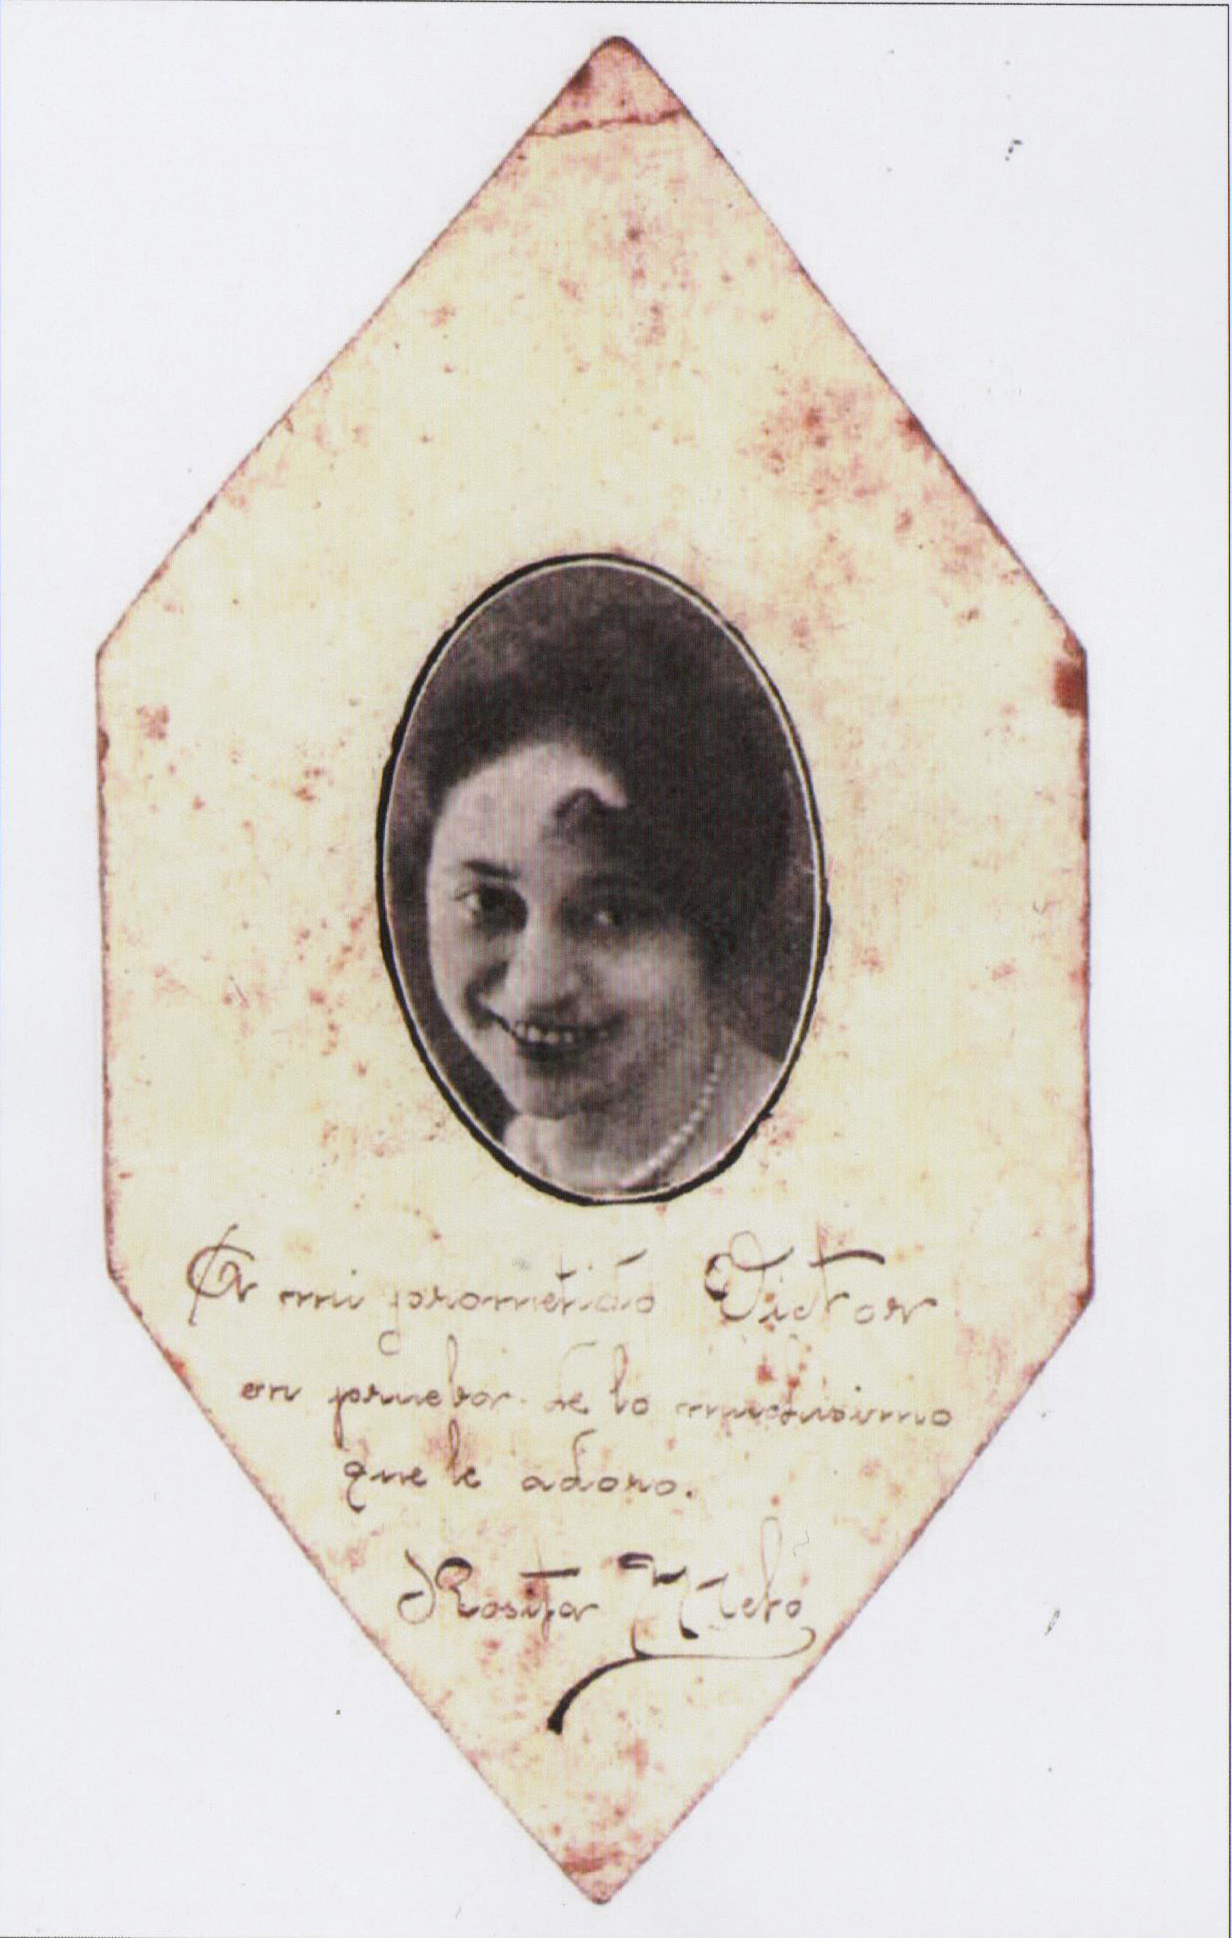 A mi prometido Victor
en prueba de lo muchisimo
que le adoro.
Rosita Melo